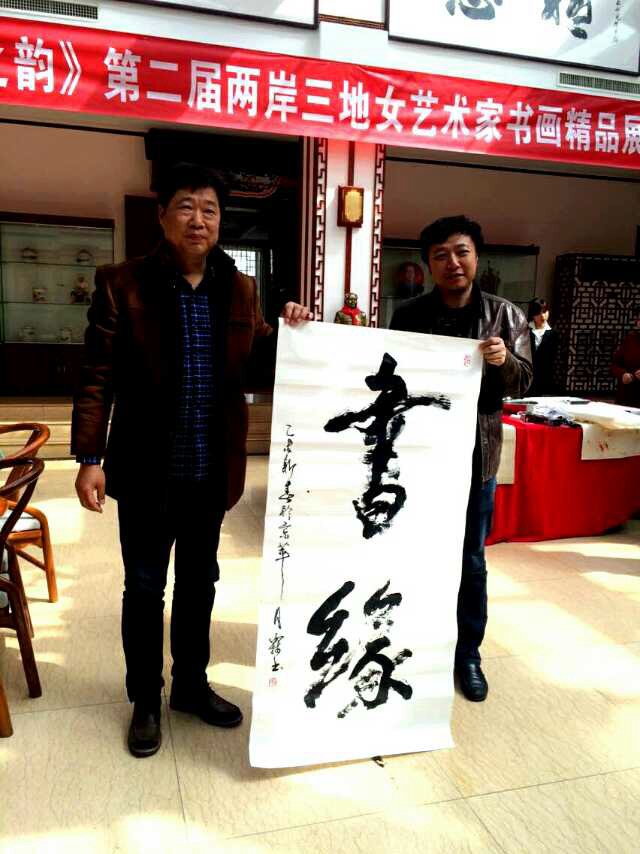 之韵》第二届两岸三地女艺术家书画精品展
書
缘
乙未新春於京華
月霖书